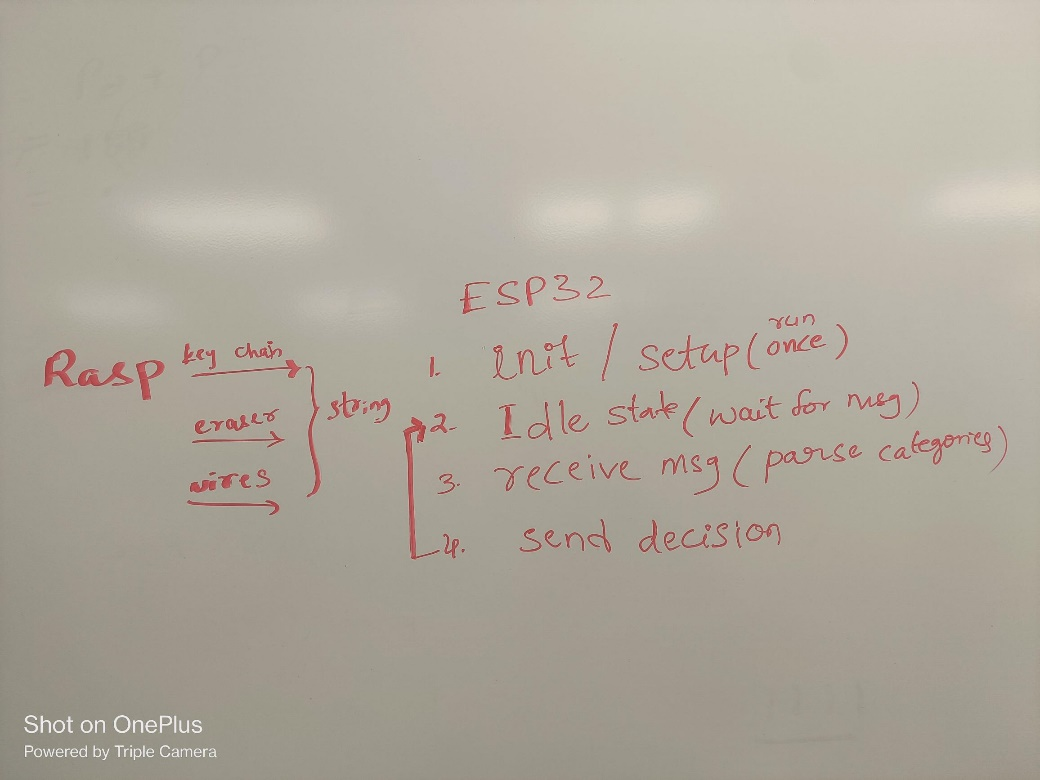 ESP32
Rasp
key chain
eraser
wires
string
1. init / setup (run once)
2. Idle state (wait for msg)
3. receive msg (parse categories)
4. send decision
Shot on OnePlus
Powered by Triple Camera